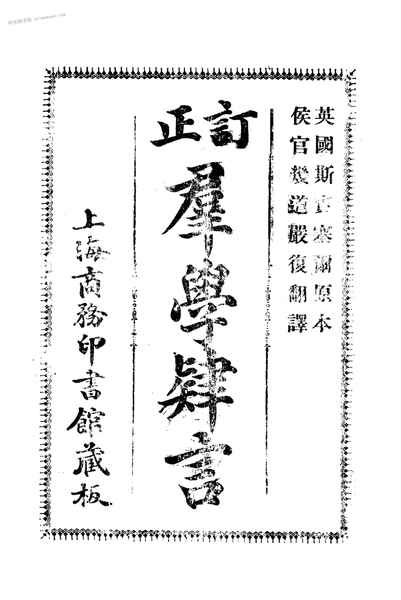 英國斯賓塞爾原本
侯官嚴復翻譯
訂正
羣學肄言
上海商務印書館藏板